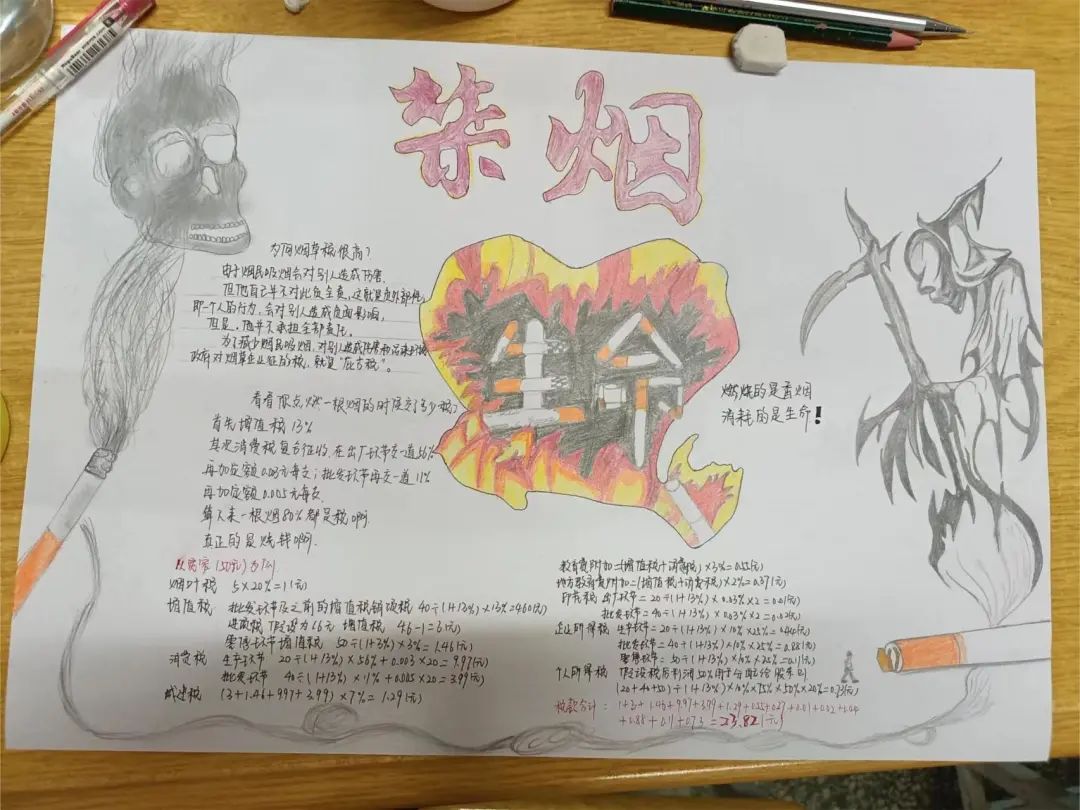 禁烟
为何烟草税很高？
由于烟民吸烟会对别人造成伤害
但他自己并不对此负全责，这就是负外部性，
即一个人的行为，会对别人造成负面影响，
但是，他并不承担全部责任。
为了减少烟民吸烟，对别人造成伤害和
政府对烟草企业征的税，就是“庇古税”。
生命
燃烧的是香烟
消耗的是生命！
看看你点燃一根烟的时候交了多少税？
首先增值税13%
其次消费税复方征收，在出厂环节交一道56%
再加定额0.003元每支；批发环节再交一道11%
再加定额0.005元每支
算下来一根烟80%都是税啊
真正的是烧钱啊
(50元)为例
烟叶税 5×20%=1(元)
增值税 批发环节及之前的增值税销项税 40÷(1+13%)×13%=4.60(元)
进项税 假设为1.6元 增值税 4.6-1=3(元)
零售环节增值税 50÷(1+3%)×3%=1.46(元)
消费税 生产环节 20÷(1+13%)×56%+0.003×20=9.97(元)
批发环节 40÷(1+13%)×11%+0.005×20=3.99(元)
城建税 (3+1.46+9.97+3.99)×7%=1.29(元)
教育费附加=(增值税+消费税)×3%=0.55(元)
地方教育费附加=(增值税+消费税)×2%=0.37(元)
印花税 出厂环节=20÷(1+13%)×0.03%×2=0.01(元)
批发环节=40÷(1+13%)×0.03%×2=0.02(元)
企业所得税 生产环节=20÷(1+13%)×10%×25%=0.44(元)
批发环节=40÷(1+13%)×10%×25%=0.88(元)
零售环节=50÷(1+3%)×10%×25%=(元)
个人所得税 假设税后利润50%用于分配给股东则
(20+40+50)÷(1+13%)×10%×75%×50%×20%=0.73(元)
税款合计：1+3+1.46+9.97+3.99+1.29+0.55+0.37+0.01+0.02+0.44
+0.88+0.11+0.73=23.82(元)